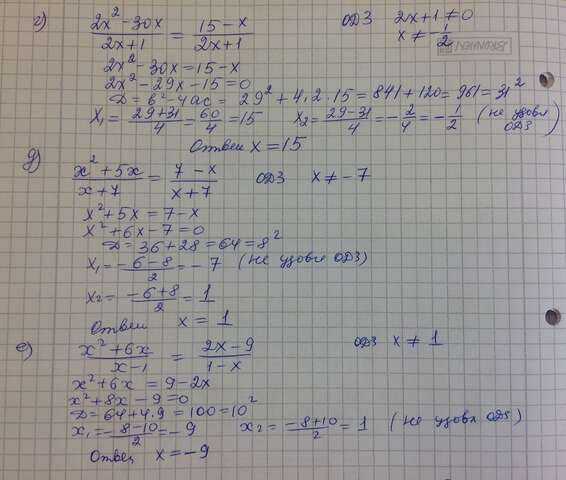 г) (2x² - 30x)/(2x+1) = (15 - x)/(2x+1) ОДЗ 2x+1 ≠ 0
x ≠ -1/2
2x² - 30x = 15 - x
2x² - 29x - 15 = 0
D = b² - 4ac = 29² + 4·2·15 = 841 + 120 = 961 = 31²
X₁ = (29+31)/4 = 60/4 = 15 X₂ = (29-31)/4 = -2/4 = -1/2 (не удовл ОДЗ)
Ответ x = 15
д) (x² + 5x)/(x+7) = (7 - x)/(x+7) ОДЗ x ≠ -7
x² + 5x = 7 - x
x² + 6x - 7 = 0
D = 36 + 28 = 64 = 8²
x₁ = (-6-8)/2 = -7 (не удовл ОДЗ)
x₂ = (-6+8)/2 = 1
Ответ x = 1
е) (x² + 6x)/(x-1) = (2x-9)/(1-x) ОДЗ x ≠ 1
x² + 6x = 9 - 2x
x² + 8x - 9 = 0
D = 64 + 4·9 = 100 = 10²
x₁ = (-8-10)/2 = -9 x₂ = (-8+10)/2 = 1 (не удовл ОДЗ)
Ответ x = -9